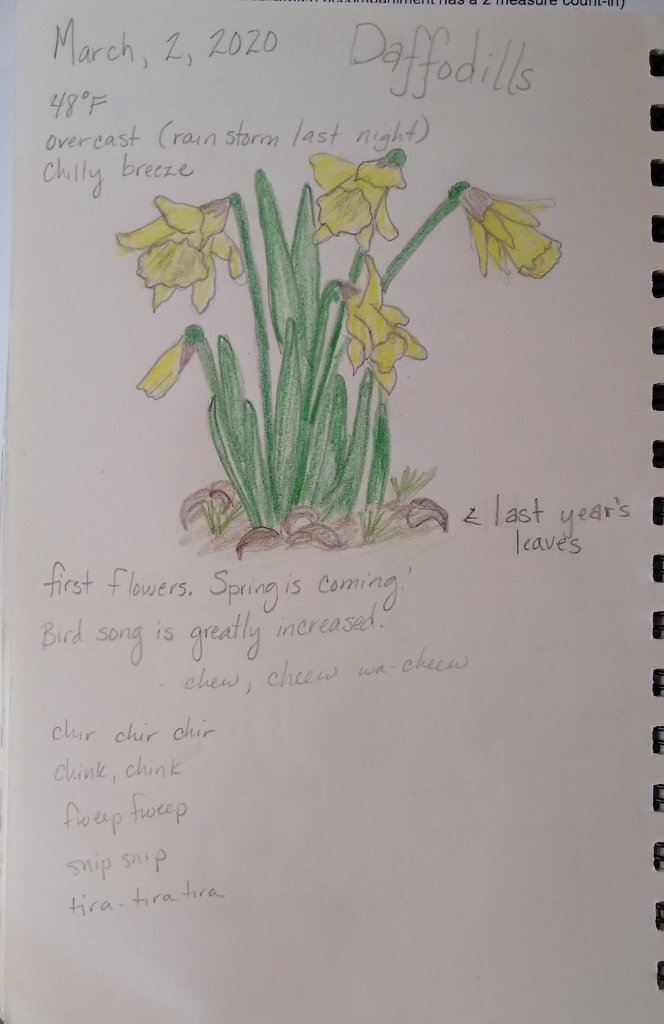 accompaniment has a 2 measure count-in)
March, 2, 2020
Daffodills
48°F
overcast (rain storm last night)
chilly breeze
< last year's
leaves
first flowers. Spring is coming!
Bird song is greatly increased.
- chew, cheew wa-cheew
chir chir chir
chink, chink
fweep fweep
snip snip
tira-tira tira